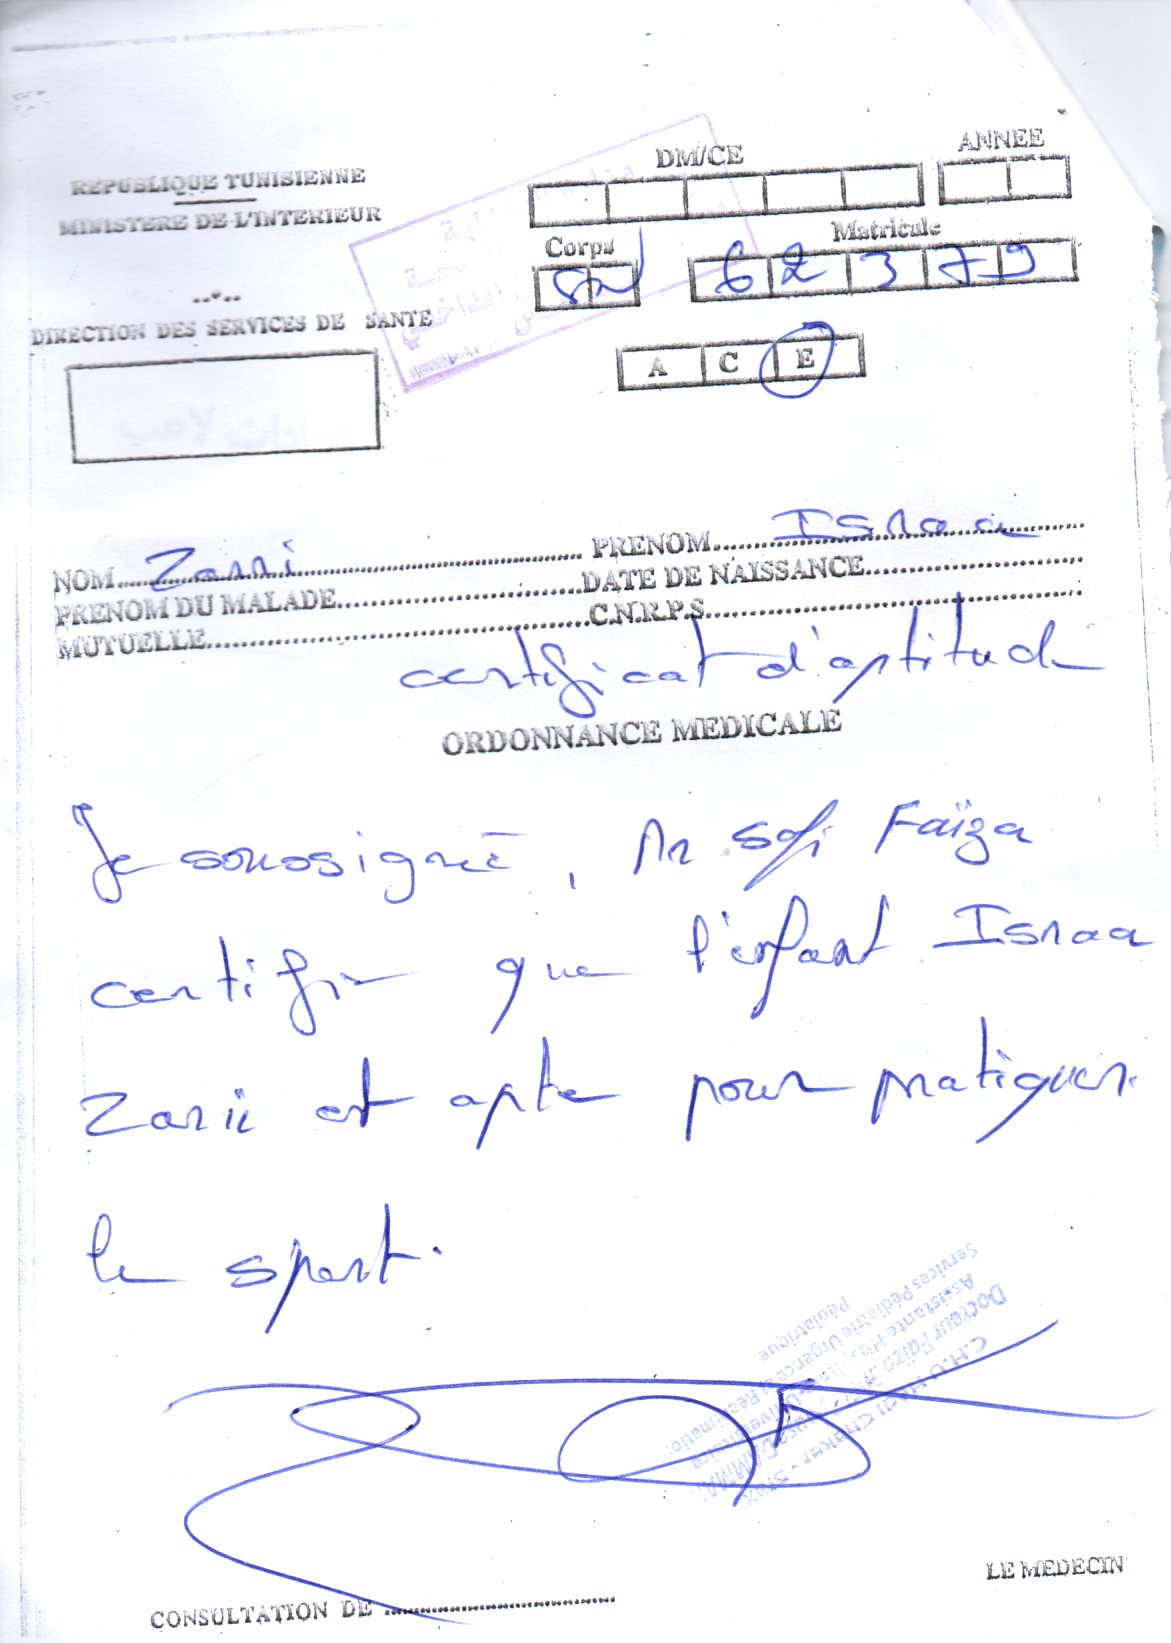 REPUBLIQUE TUNISIENNE
MINISTERE DE L'INTERIEUR
DIRECTION DES SERVICES DE SANTE
DM/CE
ANNEE
Corps
Matricule
62379
A C E
NOM Zarri PRENOM Israa
PRENOM DU MALADE DATE DE NAISSANCE
MUTUELLE C.N.R.P.S
certificat d'aptitude
ORDONNANCE MEDICALE
Je sousigné, Dr Safi Faïza
certifie que l'enfant Israa
Zarii est apte pour pratiquer
le sport.
C.H.U Hedi Chaker - Sfax
Docteur Faiza
Assistante Universitaire
Services Pédiatrie Urgence et Réanimation
Pédiatrique
LE MEDECIN
CONSULTATION DE